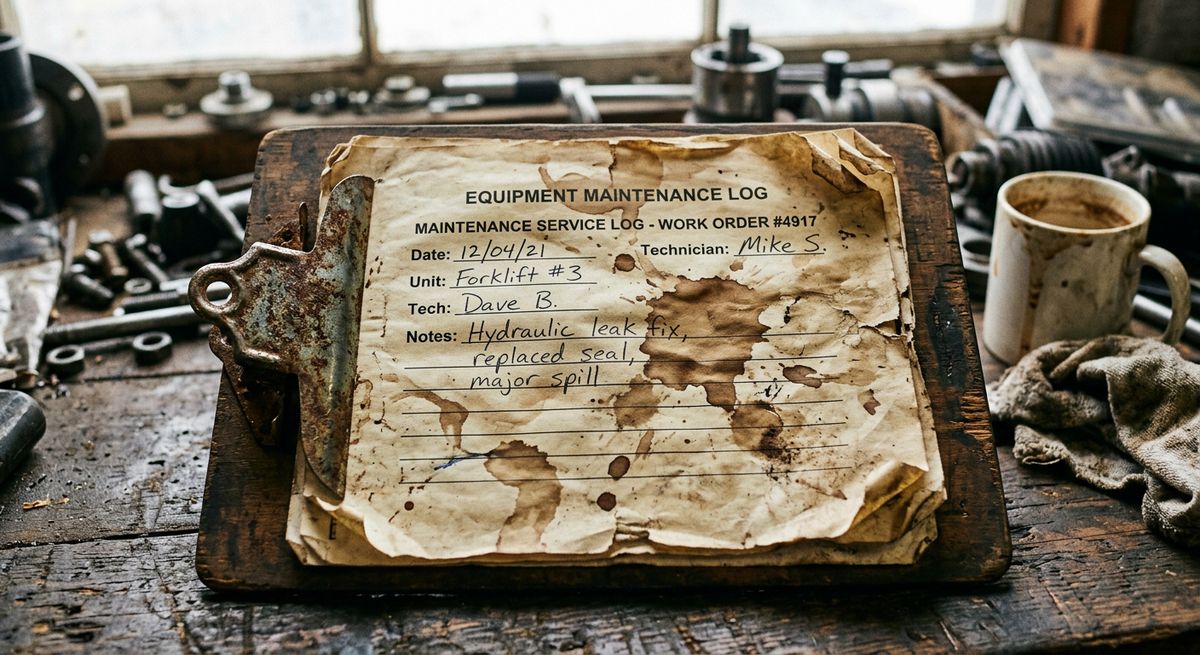 EQUIPMENT MAINTENANCE LOG
MAINTENANCE SERVICE LOG - WORK ORDER #4917
Date: 12/04/21 Technician: Mike S.
Unit: Forklift #3
Tech: Dave B.
Notes: Hydraulic leak fix,
replaced seal,
major spill